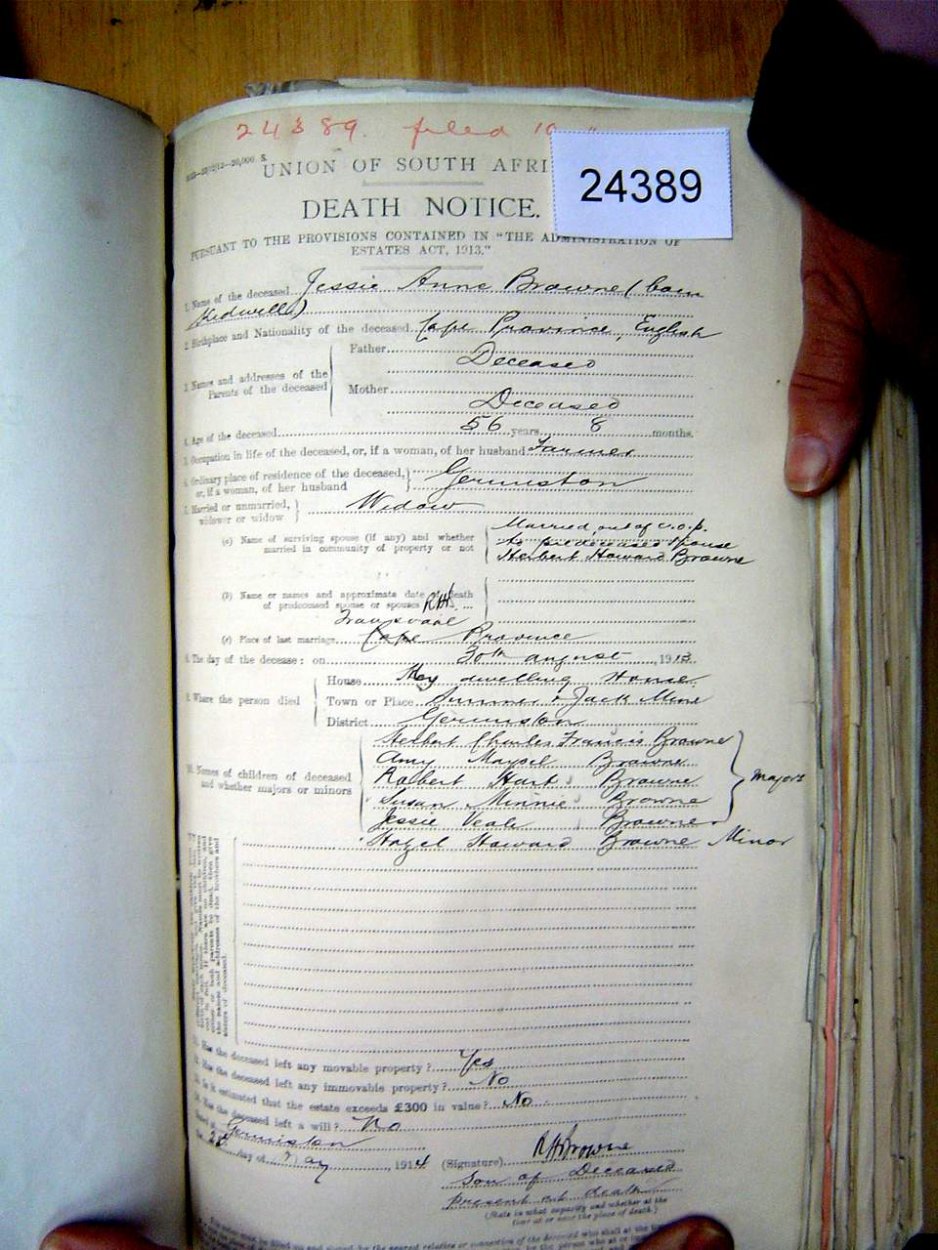 24389. filed 10
24389
UNION OF SOUTH AFRI
DEATH NOTICE.
PURSUANT TO THE PROVISIONS CONTAINED IN "THE ADMINISTRATION OF
ESTATES ACT, 1913."
1. Name of the deceased Jessie Anne Browne (born
Kidwell)
2. Birthplace and Nationality of the deceased Cape Province, English
3. Names and addresses of the Parents of the deceased
Father Deceased
Mother Deceased
4. Age of the deceased 56 years 8 months.
5. Occupation in life of the deceased, or, if a woman, of her husband Farmer
6. Ordinary place of residence of the deceased, or, if a woman, of her husband Germiston
7. Married or unmarried, widower or widow Widow
(a) Name of surviving spouse (if any) and whether married in community of property or not
Married out of c.o.p.
to predeceased spouse
Herbert Howard Browne
(b) Name or names and approximate date of death
of predeceased spouse or spouses
RHB
Transvaal
(c) Place of last marriage Cape Province
8. The day of the decease: on 30th august, 1913
9. Where the person died
House My dwelling House
Town or Place Simmer & Jack Mine
District Germiston
10. Names of children of deceased and whether majors or minors
Herbert Charles Francis Browne
Amy Browne
Robert Hart Browne
Susan Minnie Browne
Jessie Veale Browne
Majors
Hazel Howard Browne Minor
Has the deceased left any movable property? Yes
Has the deceased left any immovable property? No
Is it estimated that the estate exceeds £300 in value? No
Has the deceased left a will? No
Germiston
day of May, 1914
(Signature) RHBrowne
Son of Deceased
present at death
(State in what capacity and whether at the
time at or near the place of death.)